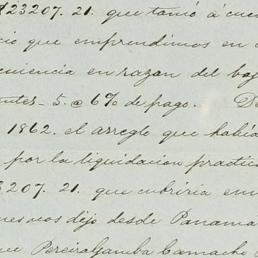 $23207. 21. que tomó á cuen
cio que emprendimos en
cuencia en razon del baj
ntes - 5. @ 6% de pago. De
1862. el arreglo que habia
por la liquidacion practic
3207. 21. que cubriria en
nos dijo desde Panama
ue Pereira Gamba Camacho